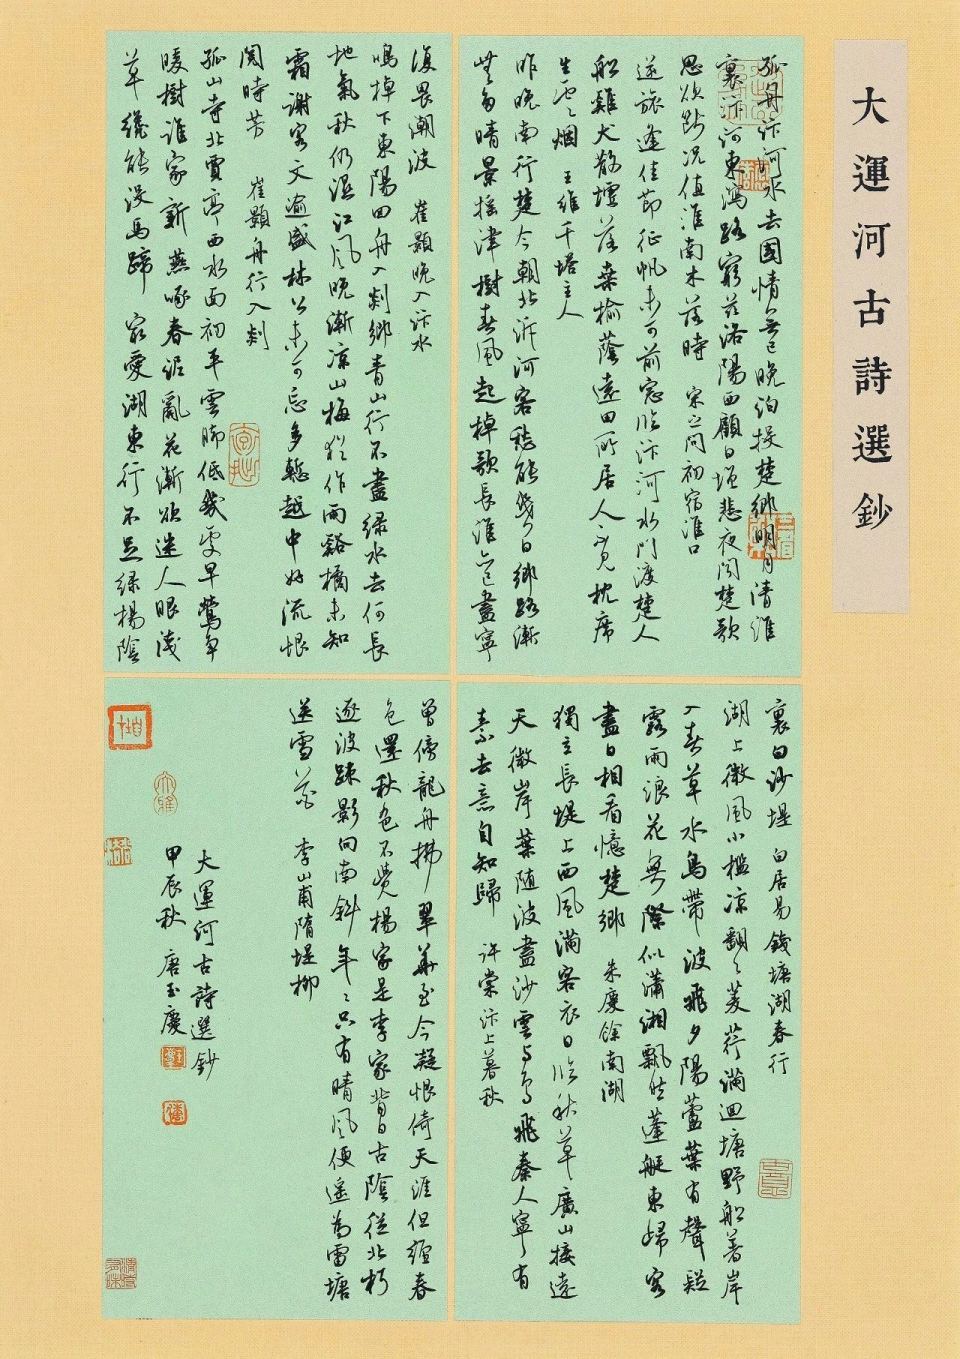 大運河古詩選鈔
孤舟汴河水去國情無已晚泊投楚鄉明月清淮
裏汴河東瀉路窮茲洛陽西顧日增悲夜聞楚歌
思欲斷況值淮南木落時 宋之問初宿淮口
逆旅逢佳節征帆未可前窗臨汴河水門渡楚人
船雞犬散墟落桑榆蔭遠田所居人不見枕席
生雲烟 王維千塔主人
昨晚南行楚今朝北泝河客愁能幾日鄉路漸
無多晴景搖津樹春風起棹歌長淮亦已盡寧
復畏潮波 崔顥晚入汴水
鳴棹下東陽回舟入剡鄉青山行不盡綠水去何長
地氣秋仍濕江風晚漸涼山梅猶作雨谿橘未知
霜謝客文逾盛林公未可忘多慙越中好流恨
閱時芳 崔顥舟行入剡
孤山寺北賈亭西水面初平雲腳低幾處早鶯爭
暖樹誰家新燕啄春泥亂花漸欲迷人眼淺
草纔能沒馬蹄 最愛湖東行不足綠楊陰
裏白沙堤 白居易錢塘湖春行
湖上微風小檻涼翻〻菱荇滿迴塘野船著岸
入春草水鳥帶波飛夕陽蘆葉有聲疑
露雨浪花無際似瀟湘飄然蓬艇東歸客
盡日相看憶楚鄉 朱慶餘南湖
獨立長堤上西風滿客衣日臨秋草廣山接遠
天微岸葉隨波盡沙雲與鳥飛秦人寧有
素去意自知歸 許棠汴上暮秋
曾傍龍舟拂翠華至今凝恨倚天涯但經春
色還秋色不覺楊家是李家背日古陰從北朽
逐波疎影向南斜年〻只有晴風便遙為雷塘
送雪花 李山甫隋堤柳
大運河古詩選鈔
甲辰秋 唐玉慶